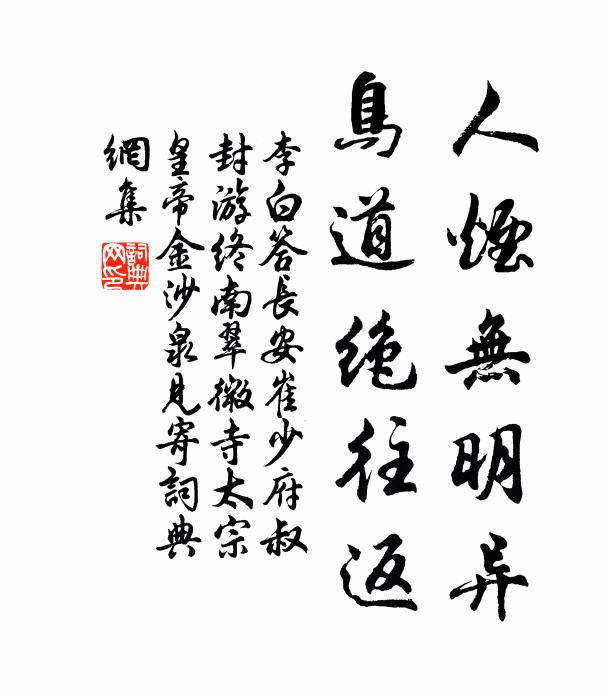 人煙無明异
鳥道絶往返
李白答長安崔少府叔
封游終南翠微寺太宗
皇帝金沙泉見寄詞典
網集
詞典
网印